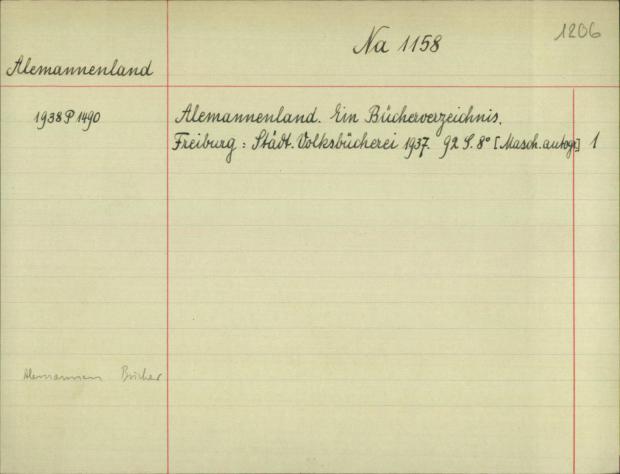 Na 1158
1206
Alemannenland
1938 P 1490
Alemannenland. Ein Bücherverzeichnis.
Freiburg: Städt. Volksbücherei 1937. 92 S. 8° [Masch. autogr.] 1
Alemannen Bücher